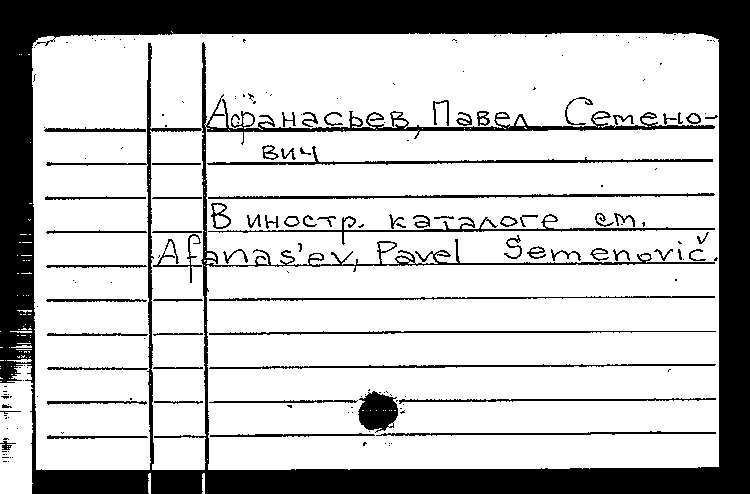 Афанасьев, Павел Семено-
вич
В иностр. каталоге см.
Afanas'ev, Pavel Semenovič.